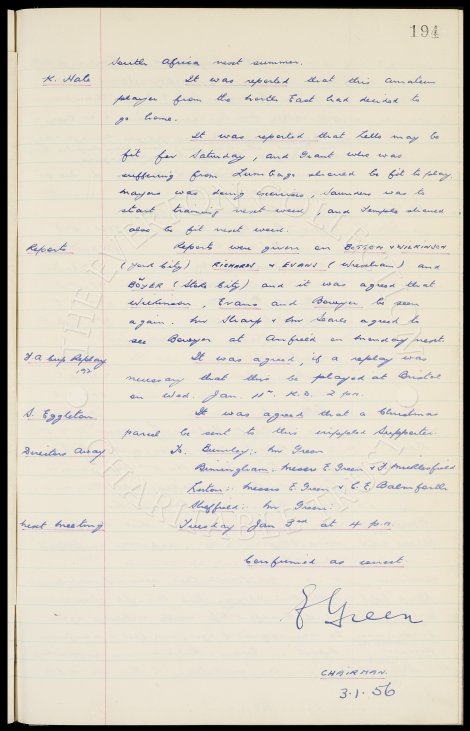 194
South Africa next summer.
K. Hale It was reported that this amateur
player from the North East had decided to
go home.
It was reported that Tells may be
fit for Saturday, and Grant who was
suffering from Lumbago should be fit to play.
Mayers was doing exercises, Saunders was to
start training next week, and Temple should
also be fit next week.
Reports Reports were given on BOTTOM & WILKINSON
(York City) RICHARDS & EVANS (Wrexham) and
BOWYER (Stoke City) and it was agreed that
Wilkinson, Evans and Bowyer be seen
again. Mr Sharp & Mr Searle agreed to
see Bowyer at Anfield on Monday next.
F A Cup Replay It was agreed, if a replay was
necessary that this be played at Bristol
on Wed. Jan 11th K.O. 2 p.m.
S. Eggleton It was agreed that a Christmas
parcel be sent to this crippled supporter.
Directors Away To Burnley:- Mr Green
Birmingham: Messrs E. Green & F. Micklesfield
Luton: Messrs E. Green & C. E. Balmforth
Sheffield: Mr Green.
Next Meeting Tuesday Jan 3rd at 4 p.m.
Confirmed as correct.
E Green
CHAIRMAN.
3.1.56
THE EVERTON COLLECTION
CHARITABLE TRUST